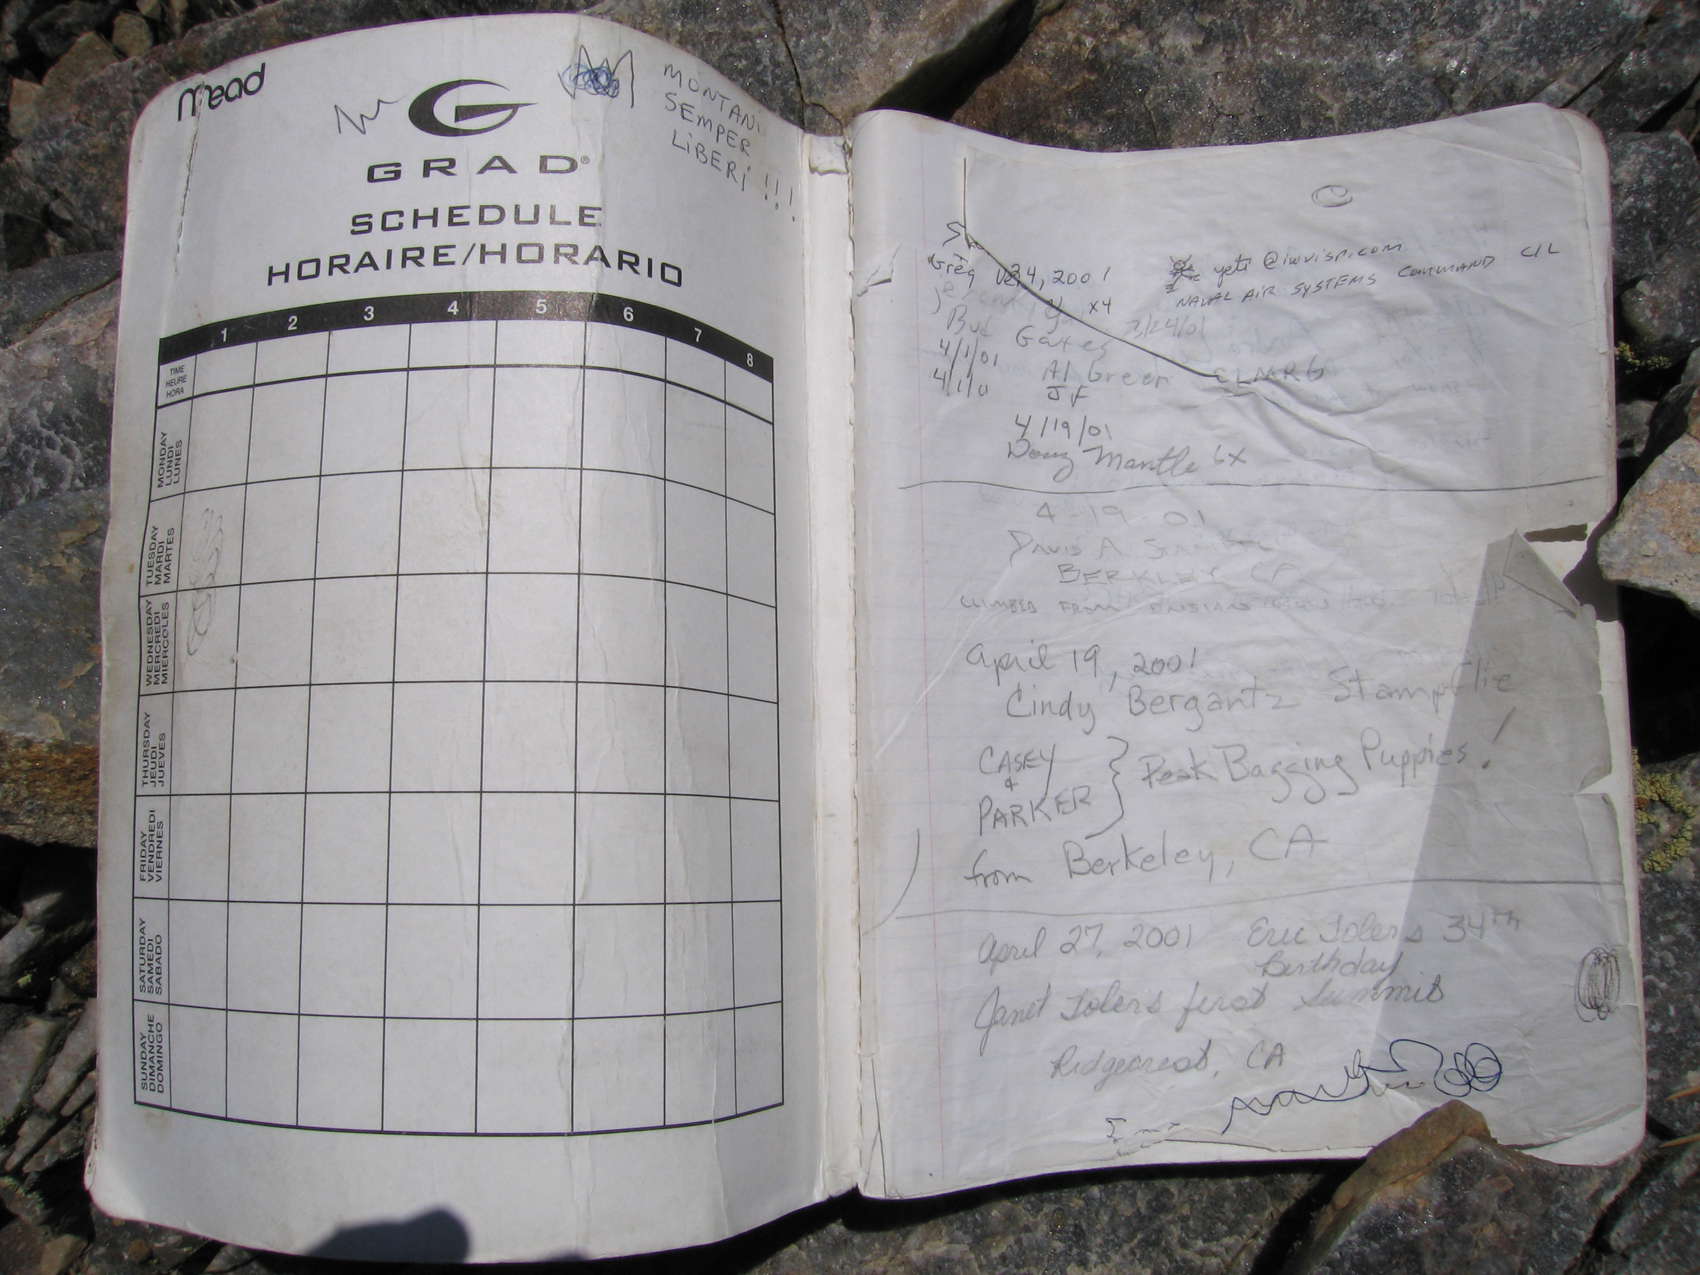 Mead
GRAD®
SCHEDULE
HORAIRE/HORARIO
MONTANI
SEMPER
LIBERI!!!
1 2 3 4 5 6 7 8
TIME
HEURE
HORA
MONDAY
LUNDI
LUNES
TUESDAY
MARDI
MARTES
WEDNESDAY
MERCREDI
MIERCOLES
THURSDAY
JEUDI
JUEVES
FRIDAY
VENDREDI
VIERNES
SATURDAY
SAMEDI
SABADO
SUNDAY
DIMANCHE
DOMINGO
yeti@iwvisp.com
Greg 24, 2001
NAVAL AIR SYSTEMS COMMAND C/L
x4
Bud Gates 3/24/01
4/1/01 Al Green CLMRG
4/1/0 JF
4/19/01
Doug Mantle 6x
4-19-01
DAVID A.
BERKLEY CA
CLIMBED FROM
April 19, 2001
Cindy Bergantz
CASEY
&
PARKER } Peak Bagging Puppies!
from Berkeley, CA
April 27, 2001 Eric Tolers 34th
Birthday
Janet Tolers first Summit
Ridgecrest, CA